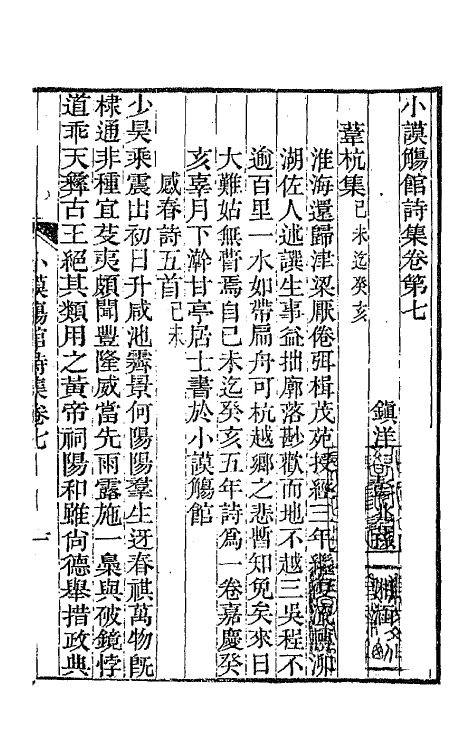 小謨觴館詩集卷第七
鎮洋
葦杭集己未迄癸亥
淮海還歸津梁厭倦弭楫茂苑授經三年泖
湖佐人述譔生事益拙廓落尠歡而地不越三吳程不
逾百里一水如帶扁舟可杭越鄉之悲暫知免矣來日
大難姑無訾焉自己未迄癸亥五年詩爲一卷嘉慶癸
亥辜月下澣甘亭居士書於小謨觴館
感春詩五首己未
少昊乘震出初日升咸池霽景何陽陽羣生迓春祺萬物旣
棣通非種宜芟夷頗聞豐隆威當先雨露施一梟與破鏡悖
道乖天彝古王絕其類用之黃帝祠陽和雖尙德舉措政典
小謨觴館詩集卷七
一